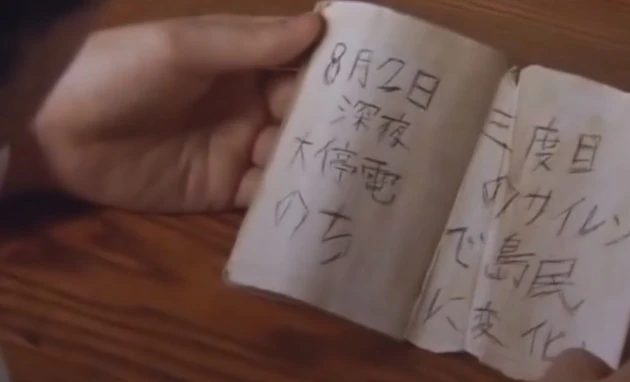 8月2日
深夜
大停電
のち
三度目
のサイレン
で島民
に変化